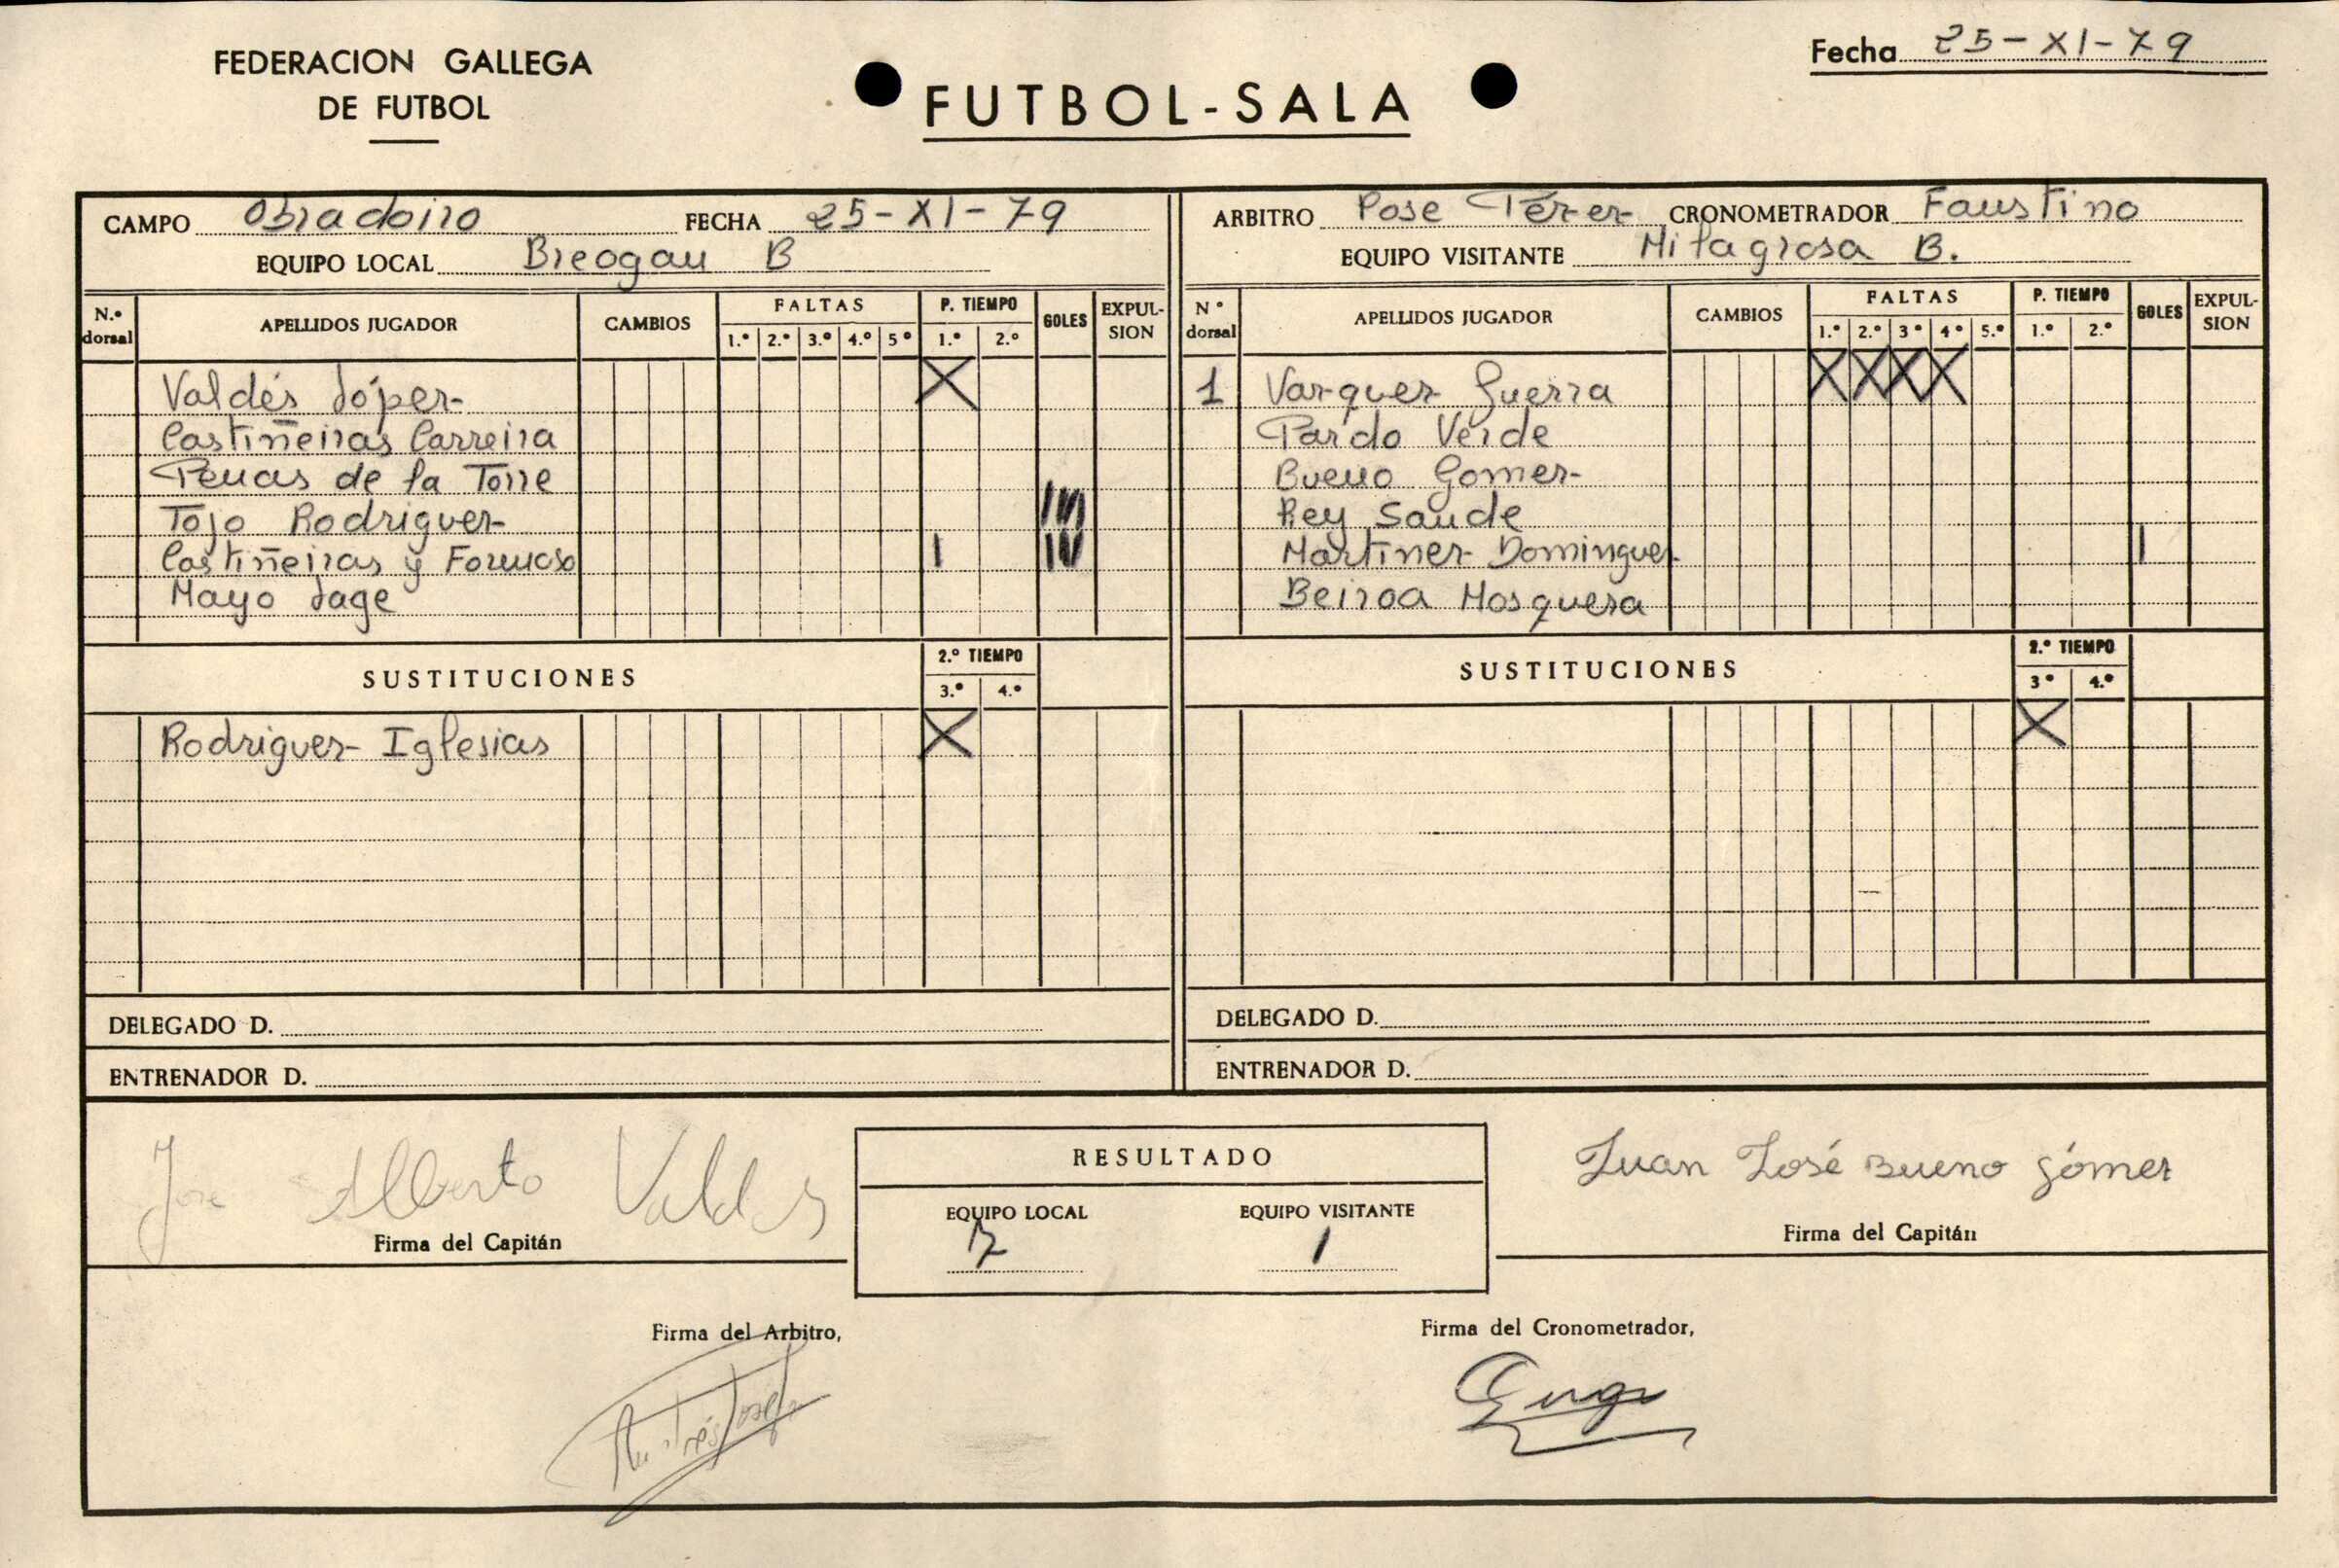 FEDERACION GALLEGA
DE FUTBOL
FUTBOL-SALA
Fecha 25-XI-79
CAMPO Obradoiro FECHA 25-XI-79
EQUIPO LOCAL Breogan B
N.º dorsal APELLIDOS JUGADOR CAMBIOS FALTAS 1.º 2.º 3.º 4.º 5º P. TIEMPO 1.º 2.º GOLES EXPULSION
Valdés López X
Castiñeiras Carreira
Penas de la Torre
Tojo Rodriguez
Castiñeiras y Formoso I
Mayo Lage
SUSTITUCIONES 2.º TIEMPO 3.º 4.º
Rodriguez Iglesias X
DELEGADO D.
ENTRENADOR D.
ARBITRO Pose Pérez CRONOMETRADOR Faustino
EQUIPO VISITANTE Milagrosa B.
Nº dorsal APELLIDOS JUGADOR CAMBIOS FALTAS 1.º 2.º 3º 4º 5.º P. TIEMPO 1.º 2.º GOLES EXPULSION
1 Vazquez Guerra X X X X
Pardo Verde
Bueno Gomez
Rey Sande
Martinez Dominguez I
Beiroa Mosquera
SUSTITUCIONES 2.º TIEMPO 3º 4.º
X
DELEGADO D.
ENTRENADOR D.
Jose Alberto Valdes
Firma del Capitán
RESULTADO
EQUIPO LOCAL EQUIPO VISITANTE
7 1
Juan José Bueno Gómez
Firma del Capitán
Firma del Arbitro,
Firma del Cronometrador,